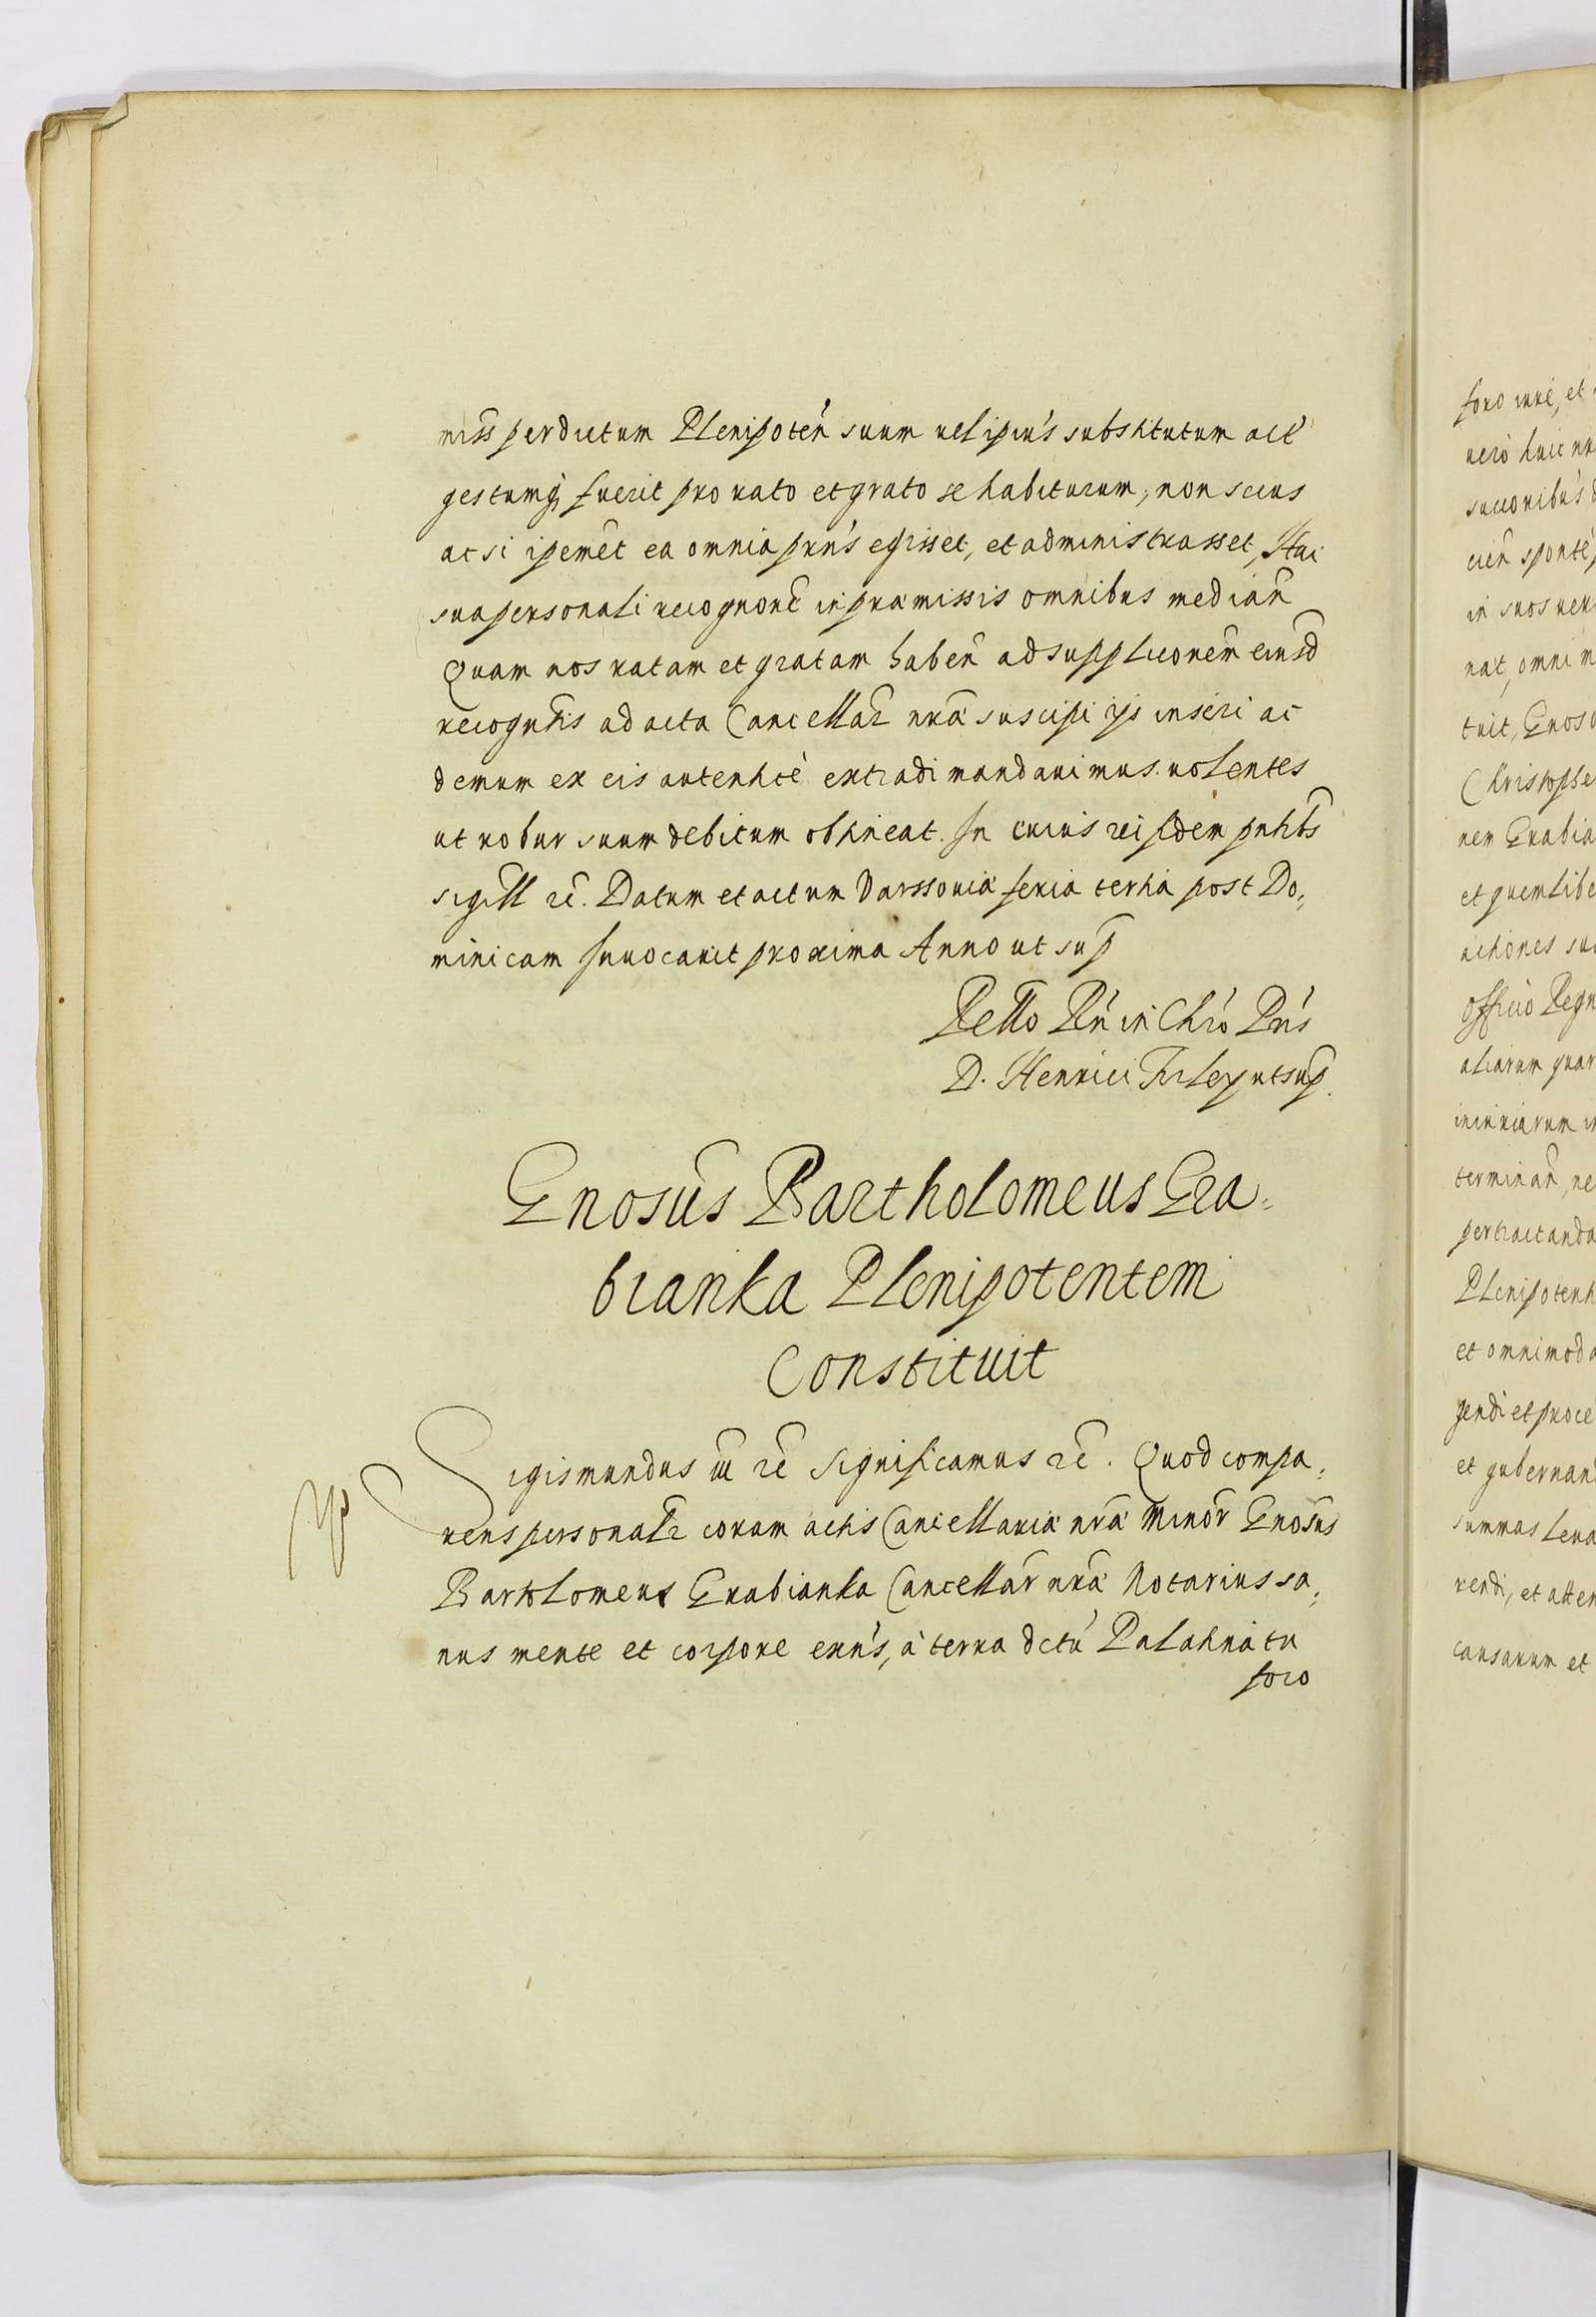 miss per dictum Plenipoten̄ suum uel ipiu's substitutum act̄
gestumq; fuerit pro rato et grato se habiturum, non secus
ac si ipemet ea omnia prn's egisset, et administrasset, Hac
sua personali recognone in præmissis omnibus median̄
Quam nos ratam et gratam haben̄ ad supplicōnem eiusd
recogntis ad acta Cancellar̄ nr̄æ suscipi ijs inseri ac
demum ex eis autenticè extradi mandauimus. uolentes
ut robur suum debitum obtineat. In cuius rei fidem pntibs
sigill rē. Datum et actum Varssouiæ feria tertia post Do;
minicam Inuocauit proxima Anno ut sup
Rello Rn' in Chro Pn's
D. Henrici Firley ut sup.
Gnosus Bartholomeus Gra-
bianka Plenipotentem
Constituit
Sigismundus iii rē Significamus rē. Quod compa;
rens personalr̄ coram actis Cancellariæ nr̄æ Minor̄ Gnosus
Bartolomeus Grabianka Cancellar̄ nr̄æ Notarius sa;
nus mente et corpore exn's, à terra dctu' Palatinatu
foro
foro iure, et
uerò huic
in suos
nat, omni
tuit, Gnos
Christophe
nem Grabia
et quemlibe
actiones su
Officio Regn
aliarum quar
iniuriarum in
terminan̄, ne
pertractanda
Plenipotent
et omnimoda
gendi et proce
et gubernan
summas leua
rendi, et atten
causarum et